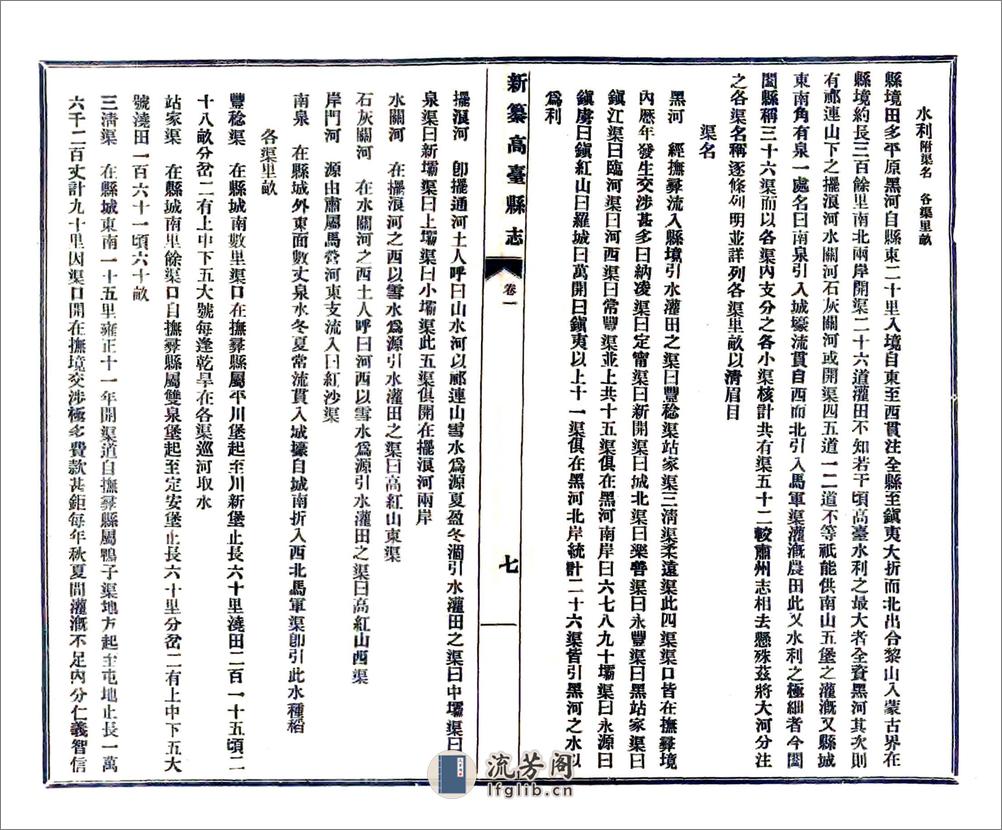 水利附渠名　各渠里畝
縣境田多平原黑河自縣東二十里入境自東至西貫注全縣至鎭夷大折而北出合黎山入蒙古界在
縣境約長三百餘里南北兩岸開渠二十六道灌田不知若干頃高臺水利之最大者全賚黑河其次則
有祁連山下之擺浪河水關河石灰關河或開渠四五道一二道不等祇能供南山五堡之灌漑又縣城
東南角有泉一處名曰南泉引入城壕流貫自西而北引入馬軍渠灌漑農田此又水利之極細者今閤
閤縣稱三十六渠而以各渠內支分之各小渠核計共有渠五十二較肅州志相去懸殊茲將大河分注
之各渠名稱逐條列明並詳列各渠里畝以淸眉目
渠名
黑河　經撫彝流入縣境引水灌田之渠曰豐稔渠站家渠三淸渠柔遠渠此四渠渠口皆在撫彝境
內歷年發生交涉甚多曰納凌渠曰定甯渠曰新開渠曰城北渠曰樂善渠曰永豐渠曰黑站家渠曰
鎭江渠曰臨河渠曰河西渠曰常豐渠並上共十五渠俱在黑河南岸曰六七八九十壩渠曰永源曰
鎭虜曰鎭紅山曰羅城曰萬開曰鎭夷以上十一渠俱在黑河北岸統計二十六渠皆引黑河之水以
爲利
新纂高臺縣志
卷一
七
擺浪河　卽擺通河土人呼曰山水河以祁連山雪水爲源夏盈冬涸引水灌田之渠曰中壩渠曰
泉渠曰新壩渠曰上壩渠曰小壩渠此五渠俱開在擺浪河兩岸
水關河　在擺浪河之西以雪水爲源引水灌田之渠曰高紅山東渠
石灰關河　在水關河之西土人呼曰河西以雪水爲源引水灌田之渠曰高紅山西渠
岸門河　源由肅屬馬營河東支流入曰紅沙渠
南泉　在縣城外東面數丈泉水冬夏常流貫入城壕自城南折入西北馬軍渠卽引此水種稻
各渠里畝
豐稔渠　在縣城南數里渠口在撫彝縣屬平川堡起至川新堡止長六十里澆田二百一十五頃二
十八畝分岔二有上中下五大號每逢乾旱在各渠巡河取水
站家渠　在縣城南里餘渠口自撫彝縣屬雙泉堡起至定安堡止長六十里分岔二有上中下五大
號澆田一百六十一頃六十畝
三淸渠　在縣城東南一十五里雍正十一年開渠道自撫彝縣屬鴨子渠地方起至屯地止長一萬
六千二百丈計九十里因渠口開在撫境交涉極多費款甚鉅每年秋夏間灌漑不足內分仁義智信
流芳阁
lfglib.cn